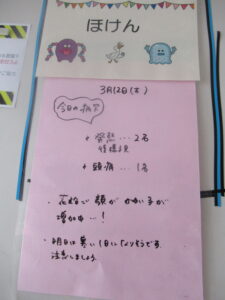 ほけん
3月12日(木)
今日の病欠
発熱…2名
+ 頭痛…1名
・花粉で顔がかゆい子が
増加中…!
・明日は寒い1日になりそうです。
注意しましょう。